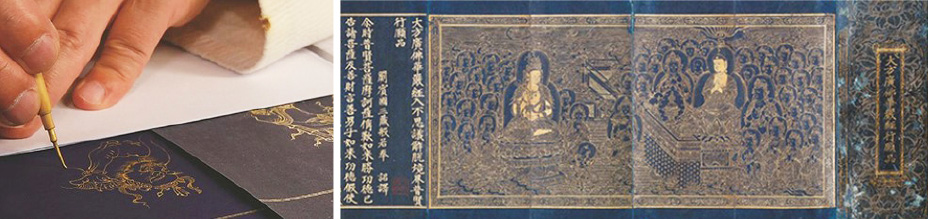 大方廣佛華嚴經行願品
大方廣佛華嚴經入不思議解脫境界普賢
行願品
罽賓國三藏般若奉 詔譯
尒時普賢菩薩摩訶薩稱歎如來勝功德已
告諸菩薩及善財言善男子如來功德假使